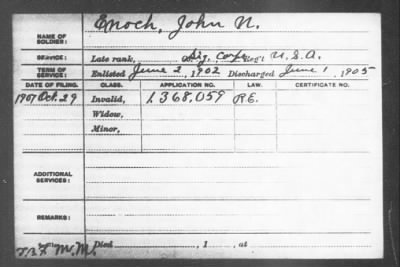 NAME OF SOLDIER: Enoch, John N.
SERVICE: Late rank, Sig. Corps Reg't U.S.A.
TERM OF SERVICE: Enlisted June 2, 1902 Discharged June 1, 1905
DATE OF FILING. CLASS. APPLICATION NO. LAW. CERTIFICATE NO.
1907 Oct. 29 Invalid, 1,368,059
Widow,
Minor,
ADDITIONAL SERVICES:
REMARKS:
Died , 1 , at